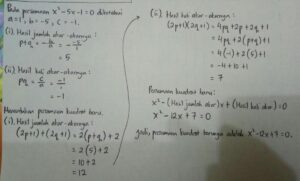 Pada persamaan x² - 5x - 1 = 0 diketahui
a = 1, b = -5, c = -1.
(i). Hasil jumlah akar-akarnya :
p + q = -b/a = - -5/1
= 5
(ii). Hasil kali akar-akarnya :
pq = c/a = -1/1
= -1
Menentukan persamaan kuadrat baru.
(i). Hasil jumlah akar-akarnya :
(2p+1) + (2q+1) = 2(p+q) + 2
= 2(5) + 2
= 10 + 2
= 12
(ii). Hasil kali akar-akarnya :
(2p+1)(2q+1) = 4pq + 2p + 2q + 1
= 4pq + 2(p+q) + 1
= 4(-1) + 2(5) + 1
= -4 + 10 + 1
= 7
Persamaan kuadrat baru :
x² - (Hasil jumlah akar)x + (Hasil kali akar) = 0
x² - 12x + 7 = 0
Jadi, persamaan kuadrat barunya adalah x² - 12x + 7 = 0.